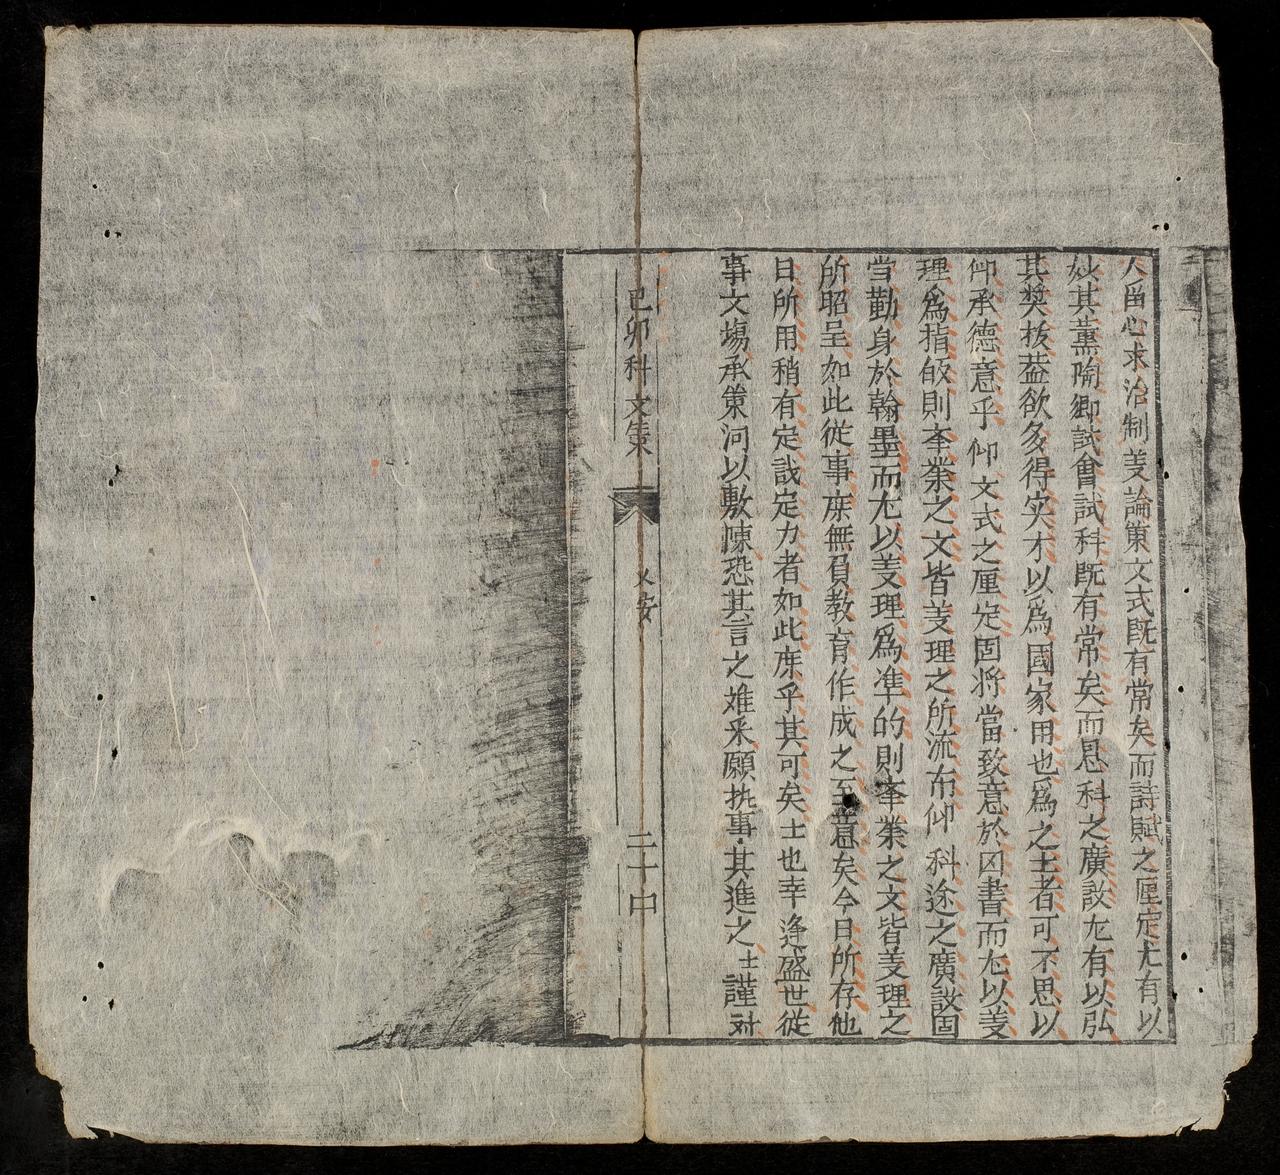 人畄心求治制𦍛論策文式既有常矣而詩賦之厘定尤有以
妙其薰陶鄉試會試科既有常矣而恩科之廣設尤有以弘
其奬拔葢欲多得实才以爲國家用也爲之士者可不思以
仰承德意乎仰文式之厘定固將當致意於四書而尤以𦍛
理爲指皈則峚業之文皆𦍛理之所流布仰科途之廣設固
当勤身於翰墨而尤以𦍛理爲準的則峚業之文皆𦍛理之
所昭呈如此從事庶無負教育作成之至意矣今日所存他
日所用稍有定哉定力者如此庶乎其可矣士也幸逢盛世從
事文塲承策河以敷陳恐其言之难采願执事其進之士謹对
己卯科文策
乂安
二十中